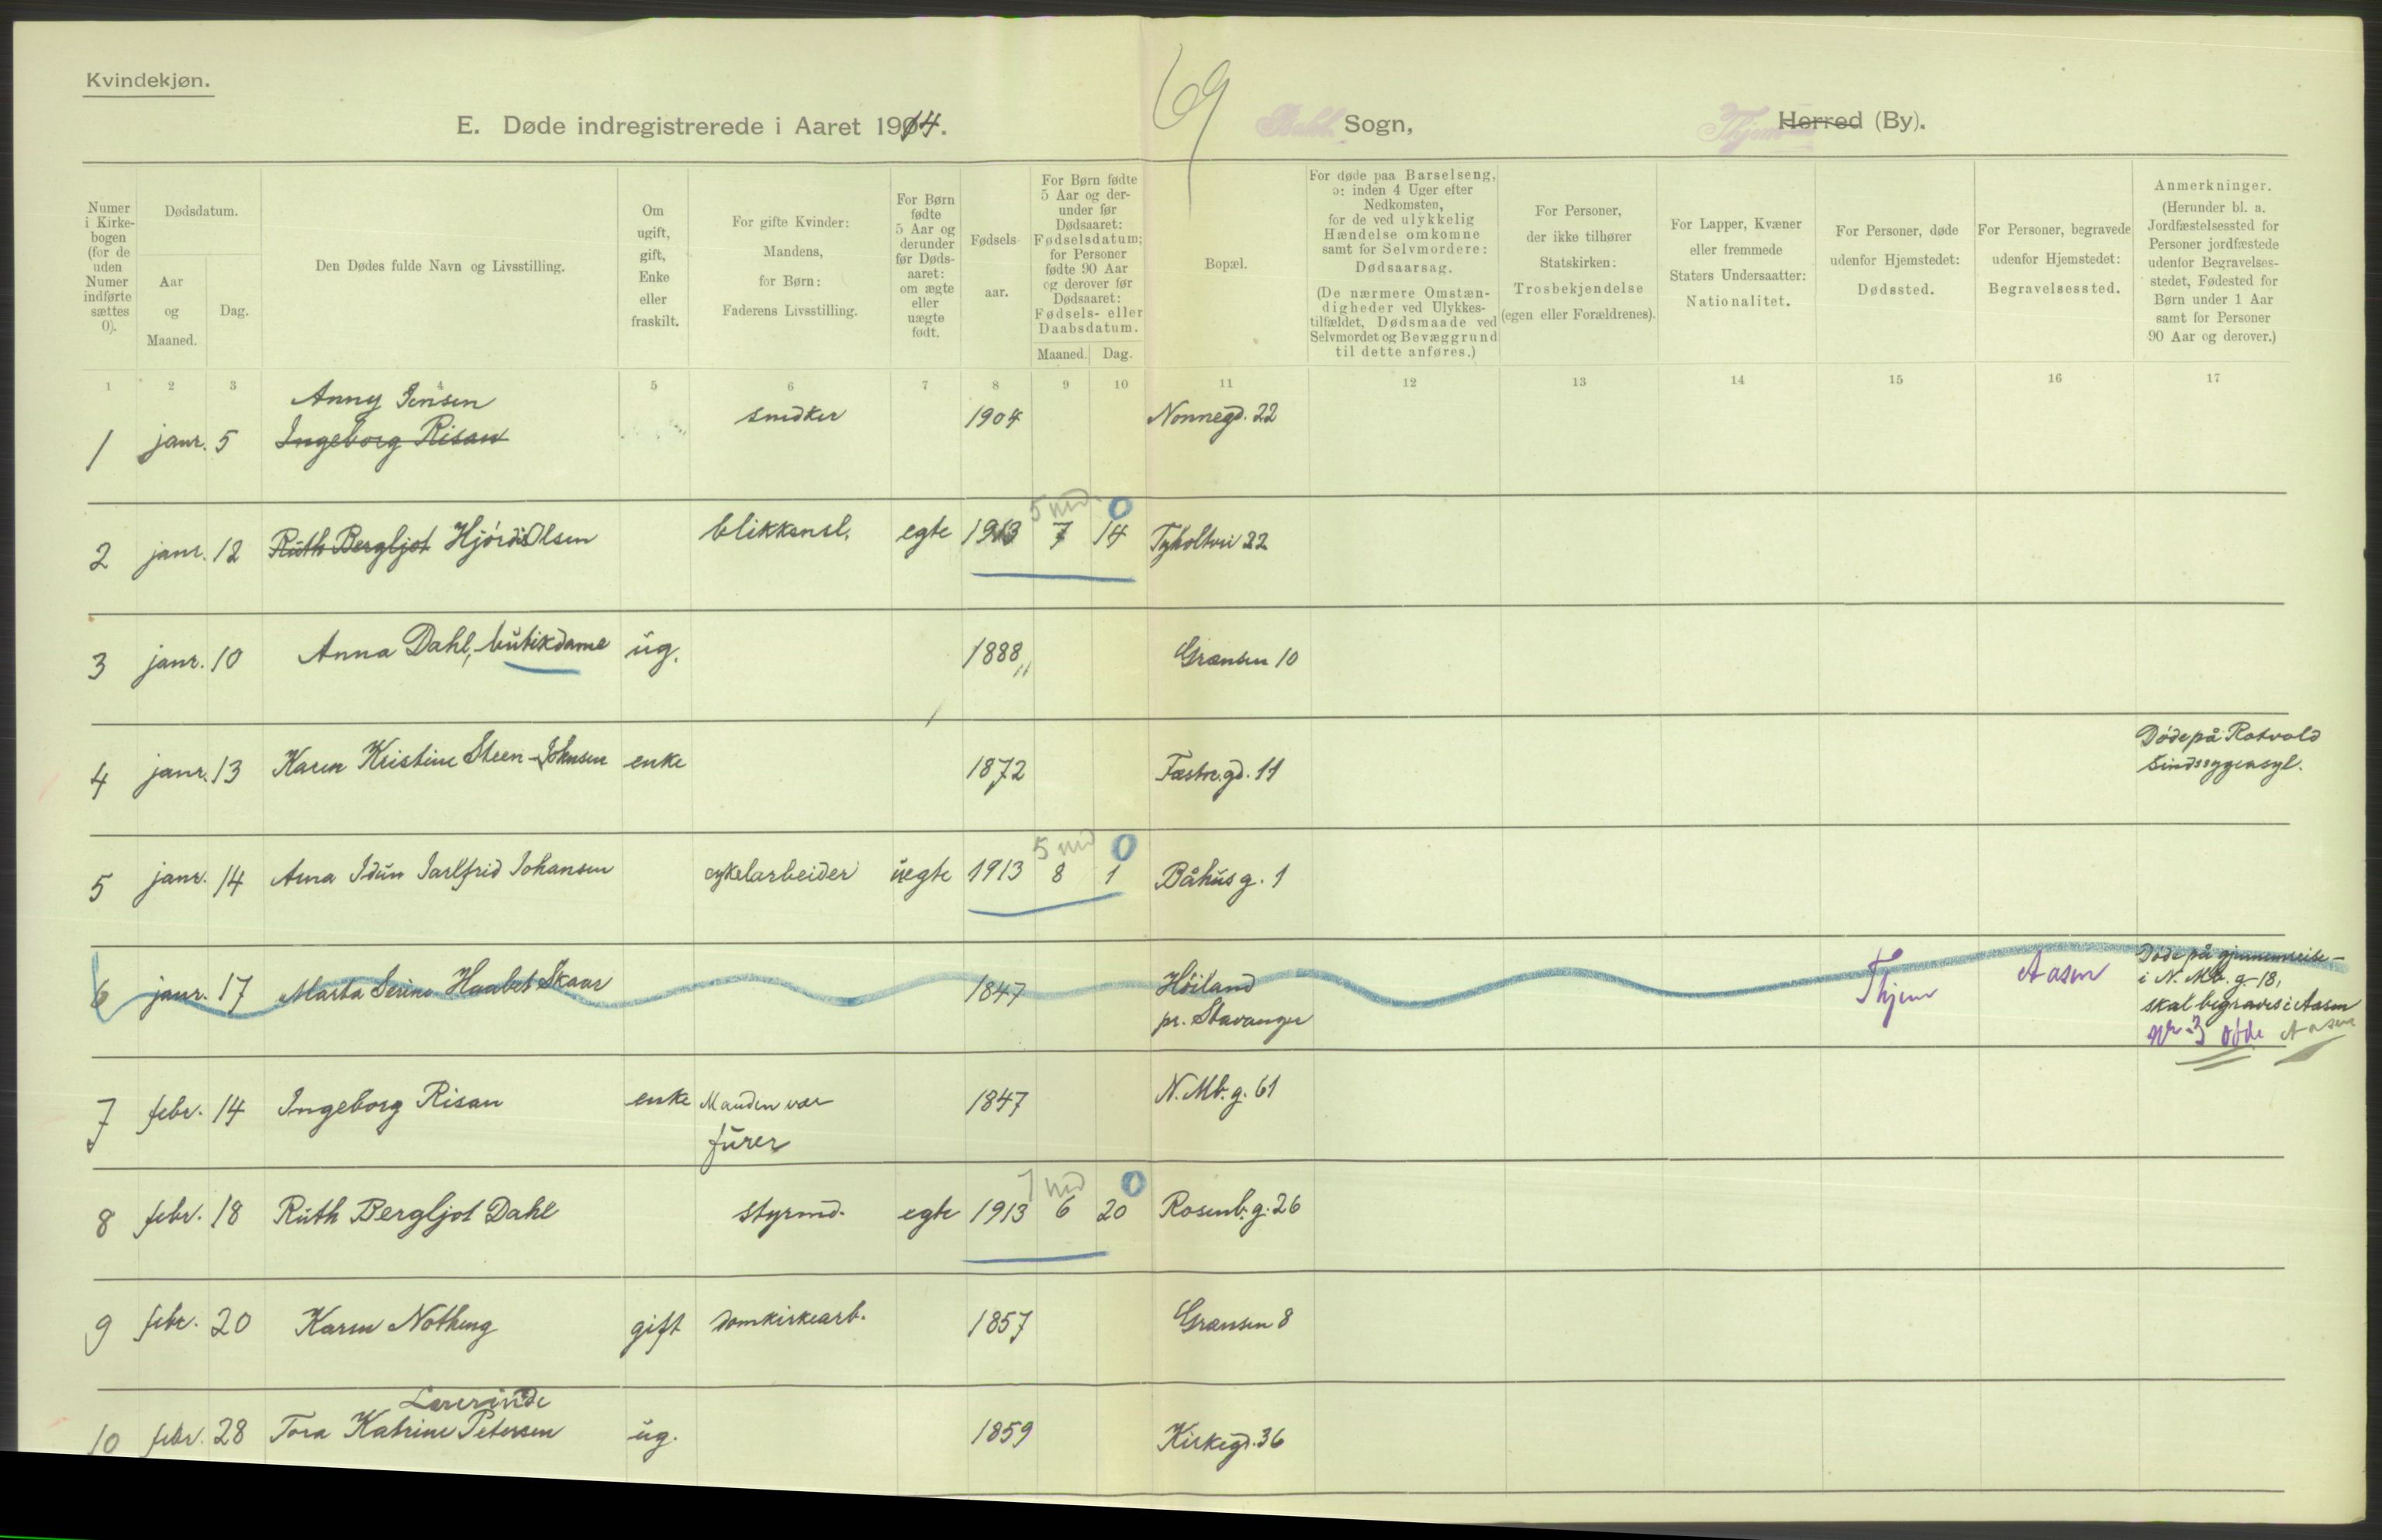 Kvindekjøn.
E. Døde indregistrerede i Aaret 1914.
69
Sogn,
Herred (By).
Numer i Kirkebogen (for de uden Numer indførte sættes 0).
Dødsdatum.
Aar og Maaned.
Dag.
Den Dødes fulde Navn og Livsstilling.
Om ugift, gift, Enke eller fraskilt.
For gifte Kvinder: Mandens, for Børn: Faderens Livsstilling.
For Børn fødte 5 Aar og derunder før Dødsaaret: om ægte eller uægte født.
Fødselsaar.
For Børn fødte 5 Aar og derunder før Dødsaaret: Fødselsdatum; for Personer fødte 90 Aar og derover før Dødsaaret: Fødsels- eller Daabsdatum.
Maaned. Dag.
Bopæl.
For døde paa Barselseng, ɔ: inden 4 Uger efter Nedkomsten, for de ved ulykkelig Hændelse omkomne samt for Selvmordere: Dødsaarsag. (De nærmere Omstændigheder ved Ulykkestilfældet, Dødsmaade ved Selvmordet og Bevæggrund til dette anføres.)
For Personer, der ikke tilhører Statskirken: Trosbekjendelse (egen eller Forældrenes).
For Lapper, Kvæner eller fremmede Staters Undersaatter: Nationalitet.
For Personer, døde udenfor Hjemstedet: Dødssted.
For Personer, begravede udenfor Hjemstedet: Begravelsessted.
Anmerkninger. (Herunder bl. a. Jordfæstelsessted for Personer jordfæstede udenfor Begravelsesstedet, Fødested for Børn under 1 Aar samt for Personer 90 Aar og derover.)
1 2 3 4 5 6 7 8 9 10 11 12 13 14 15 16 17
Anny Jensen
1 janr. 5 Ingeborg Risan snedker 1904 Nonnegd. 22
5 md. 0
2 janr. 12 Ruth Bergljot Hjørdis Olsen blikkensl. egte 1913 7 14 Tyholtvei 22
3 janr. 10 Anna Dahl, butikdame ug. 1888 Grænsen 10
4 janr. 13 Karen Kristine Steen-Johnsen enke 1872 Fæstn.gd. 11 Døde på Rotvold
Sindssygeasyl.
5 md 0
5 janr. 14 Arna Idun Jarlfrid Johansen cykelarbeider uegte 1913 8 1 Båhus g. 1
6 janr. 17 Marta Serine Haabet Skaar 1847 Høiland Thjem Aasen Døde på gjennemreise
pr. Stavanger i N. Mb. g. 18,
skal begraves i Aasen
Nr 3 døde Aasen
7 febr. 14 Ingeborg Risan enke Manden var 1847 N. Mb. g. 61
furer
7 md 0
8 febr. 18 Ruth Bergljot Dahl styrmd. egte 1913 6 20 Rosenb. g. 26
9 febr. 20 Karen Nothung gift domkirkearb. 1857 Grænsen 8
Lærerinde
10 febr. 28 Tora Katrine Petersen ug. 1859 Kirkegd. 36